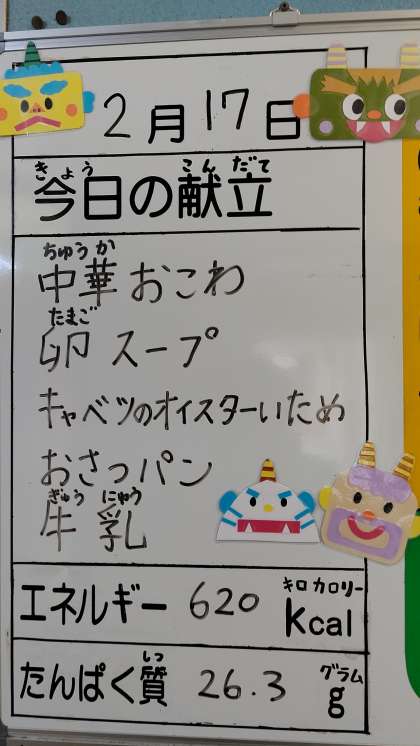 2月17日
きょう こんだて
今日の献立
ちゅうか
中華おこわ
たまご
卵スープ
キャベツのオイスターいため
おさつパン
ぎゅう にゅう
牛乳
キロカロリー
エネルギー 620 kcal
しつ グラム
たんぱく質 26.3 g